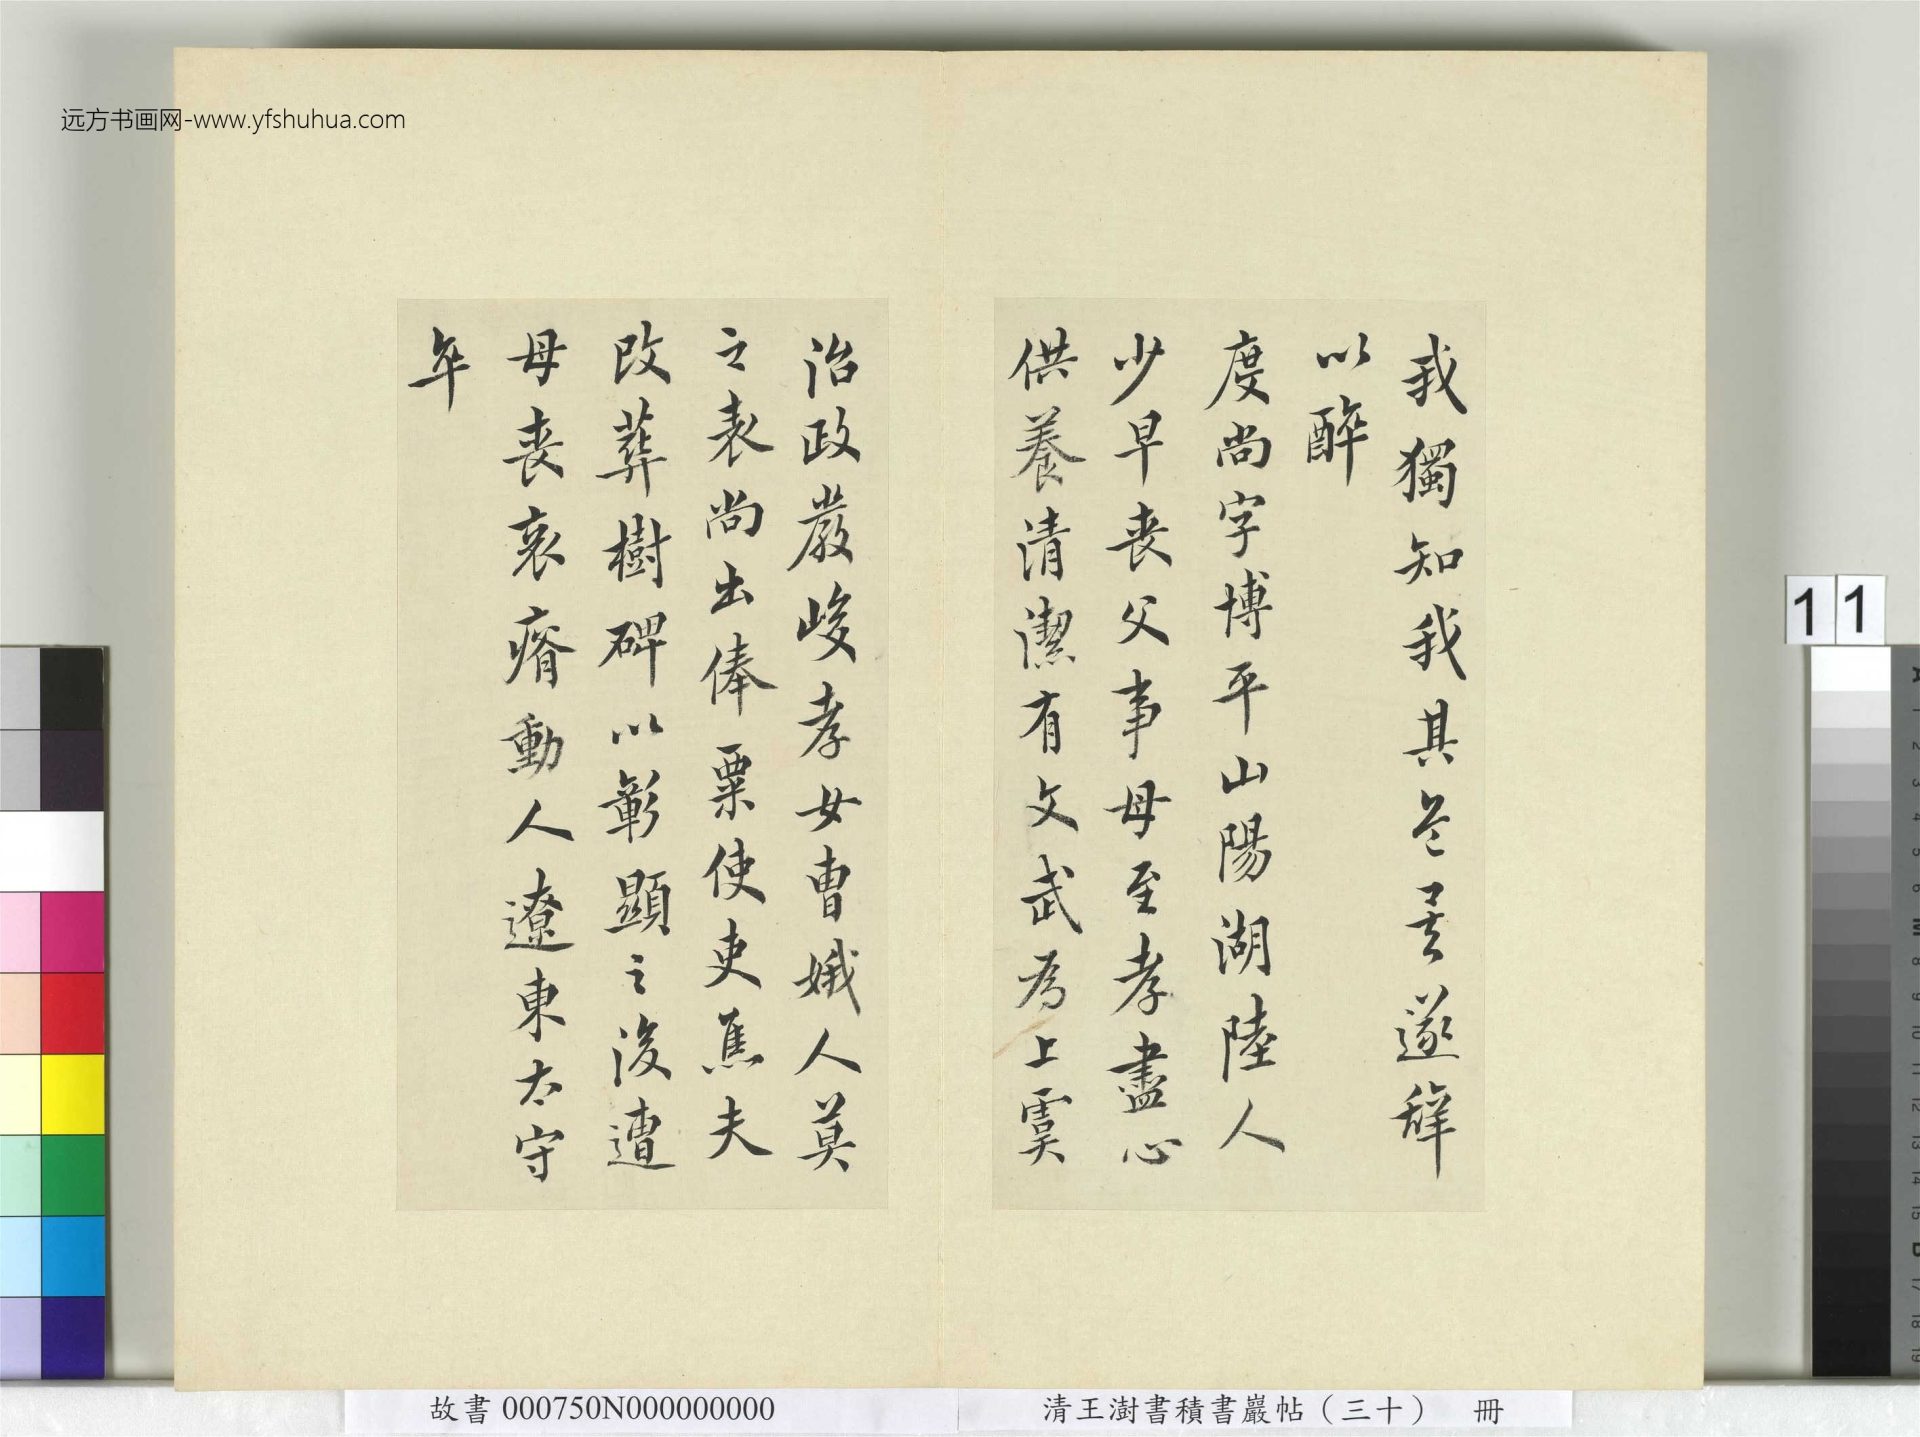 远方书画网-www.yfshuhua.com
我獨知我其必夭遂辭
以醉
度尚字博平山陽湖陸人
少早喪父事母至孝盡心
供養清潔有文武為上虞
治政嚴峻孝女曹娥人莫
之表尚出俸粟使吏焦夫
改葬樹碑以彰顯之後遭
母喪哀瘠動人遼東太守
年
11
故書 000750N000000000
清王澍書積書巖帖（三十） 冊